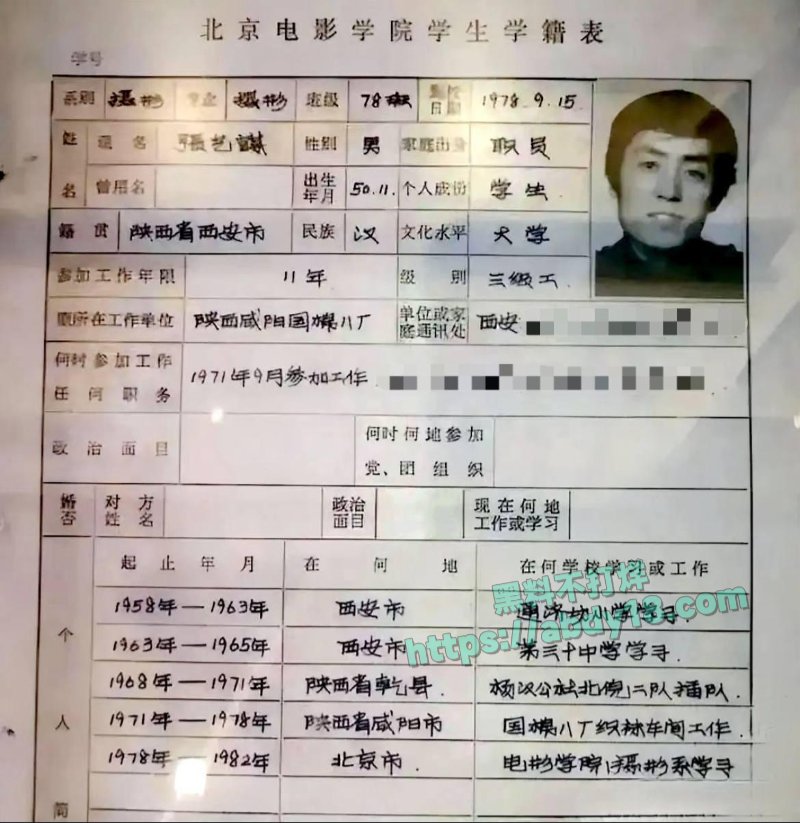 北京电影学院学生学籍表
学号
系别 摄影 专业 摄影 班级 78班 入校日期 1978.9.15
姓名 现名 張艺謀 性别 男 家庭出身 职员
曾用名 出生年月 50.11. 个人成份 学生
籍贯 陕西省西安市 民族 汉 文化水平 大学
参加工作年限 11年 级别 三级工
原所在工作单位 陕西咸阳国棉八厂 单位或家庭通讯处 西安
何时参加工作任何职务 1971年9月参加工作
政治面目 何时何地参加党、团组织
婚否 对方姓名 政治面目 现在何地工作或学习
个人简
起止年月 在何地 在何学校学习或工作
1958年—1963年 西安市 通济坊小学学习
1963年—1965年 西安市 第三十中学学习.
1968年—1971年 陕西省乾县. 杨汉公社北倪二队插队.
1971年—1978年 陕西省咸阳市 国棉八厂织袜车间工作.
1978年—1982年 北京市. 电影学院摄影系学习
黑料不打烊